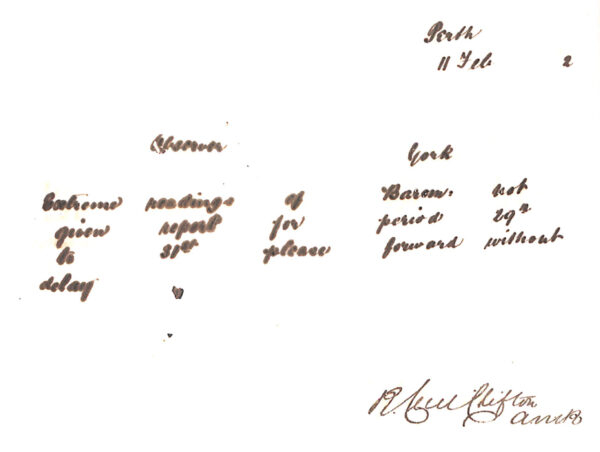 Perth
11 Feb 2
Observer York
Extreme readings of Barom. not
given report for period 29th
to 31st please forward without
delay
R. Cecil Clifton